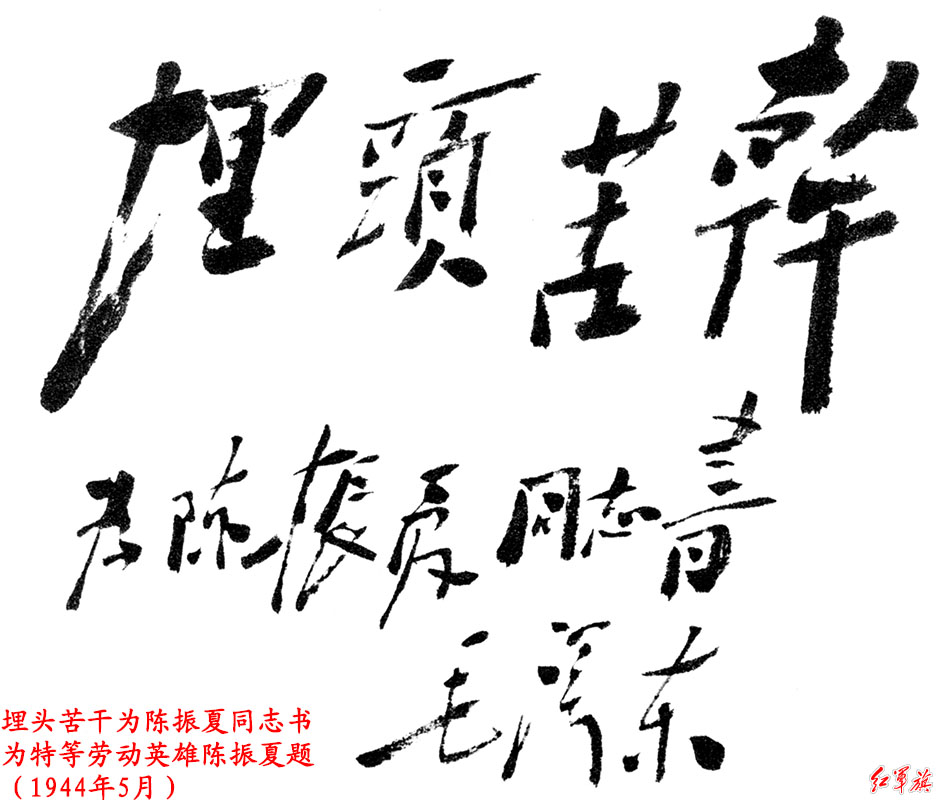 埋頭苦幹
为陈振夏同志書
毛澤东
埋头苦干为陈振夏同志书
为特等劳动英雄陈振夏题
（1944年5月）
红军旗